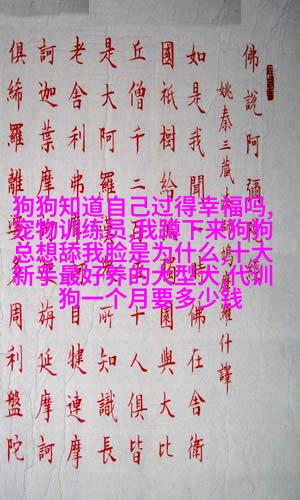 狗狗知道自己过得幸福吗,
宠物训练员,我蹲下来狗狗
总想舔我脸是为什么,十大
新手最好养的大型犬,代训
狗一个月要多少钱
佛說阿彌
姚秦三藏摩羅什譯
如是我聞時佛在舍衛
國祇樹給園與大比
丘僧千二十人俱皆
是大阿羅所知識長
老舍利弗犍連摩
訶迦葉摩旃延摩訶
俱絺羅離周利盤陀